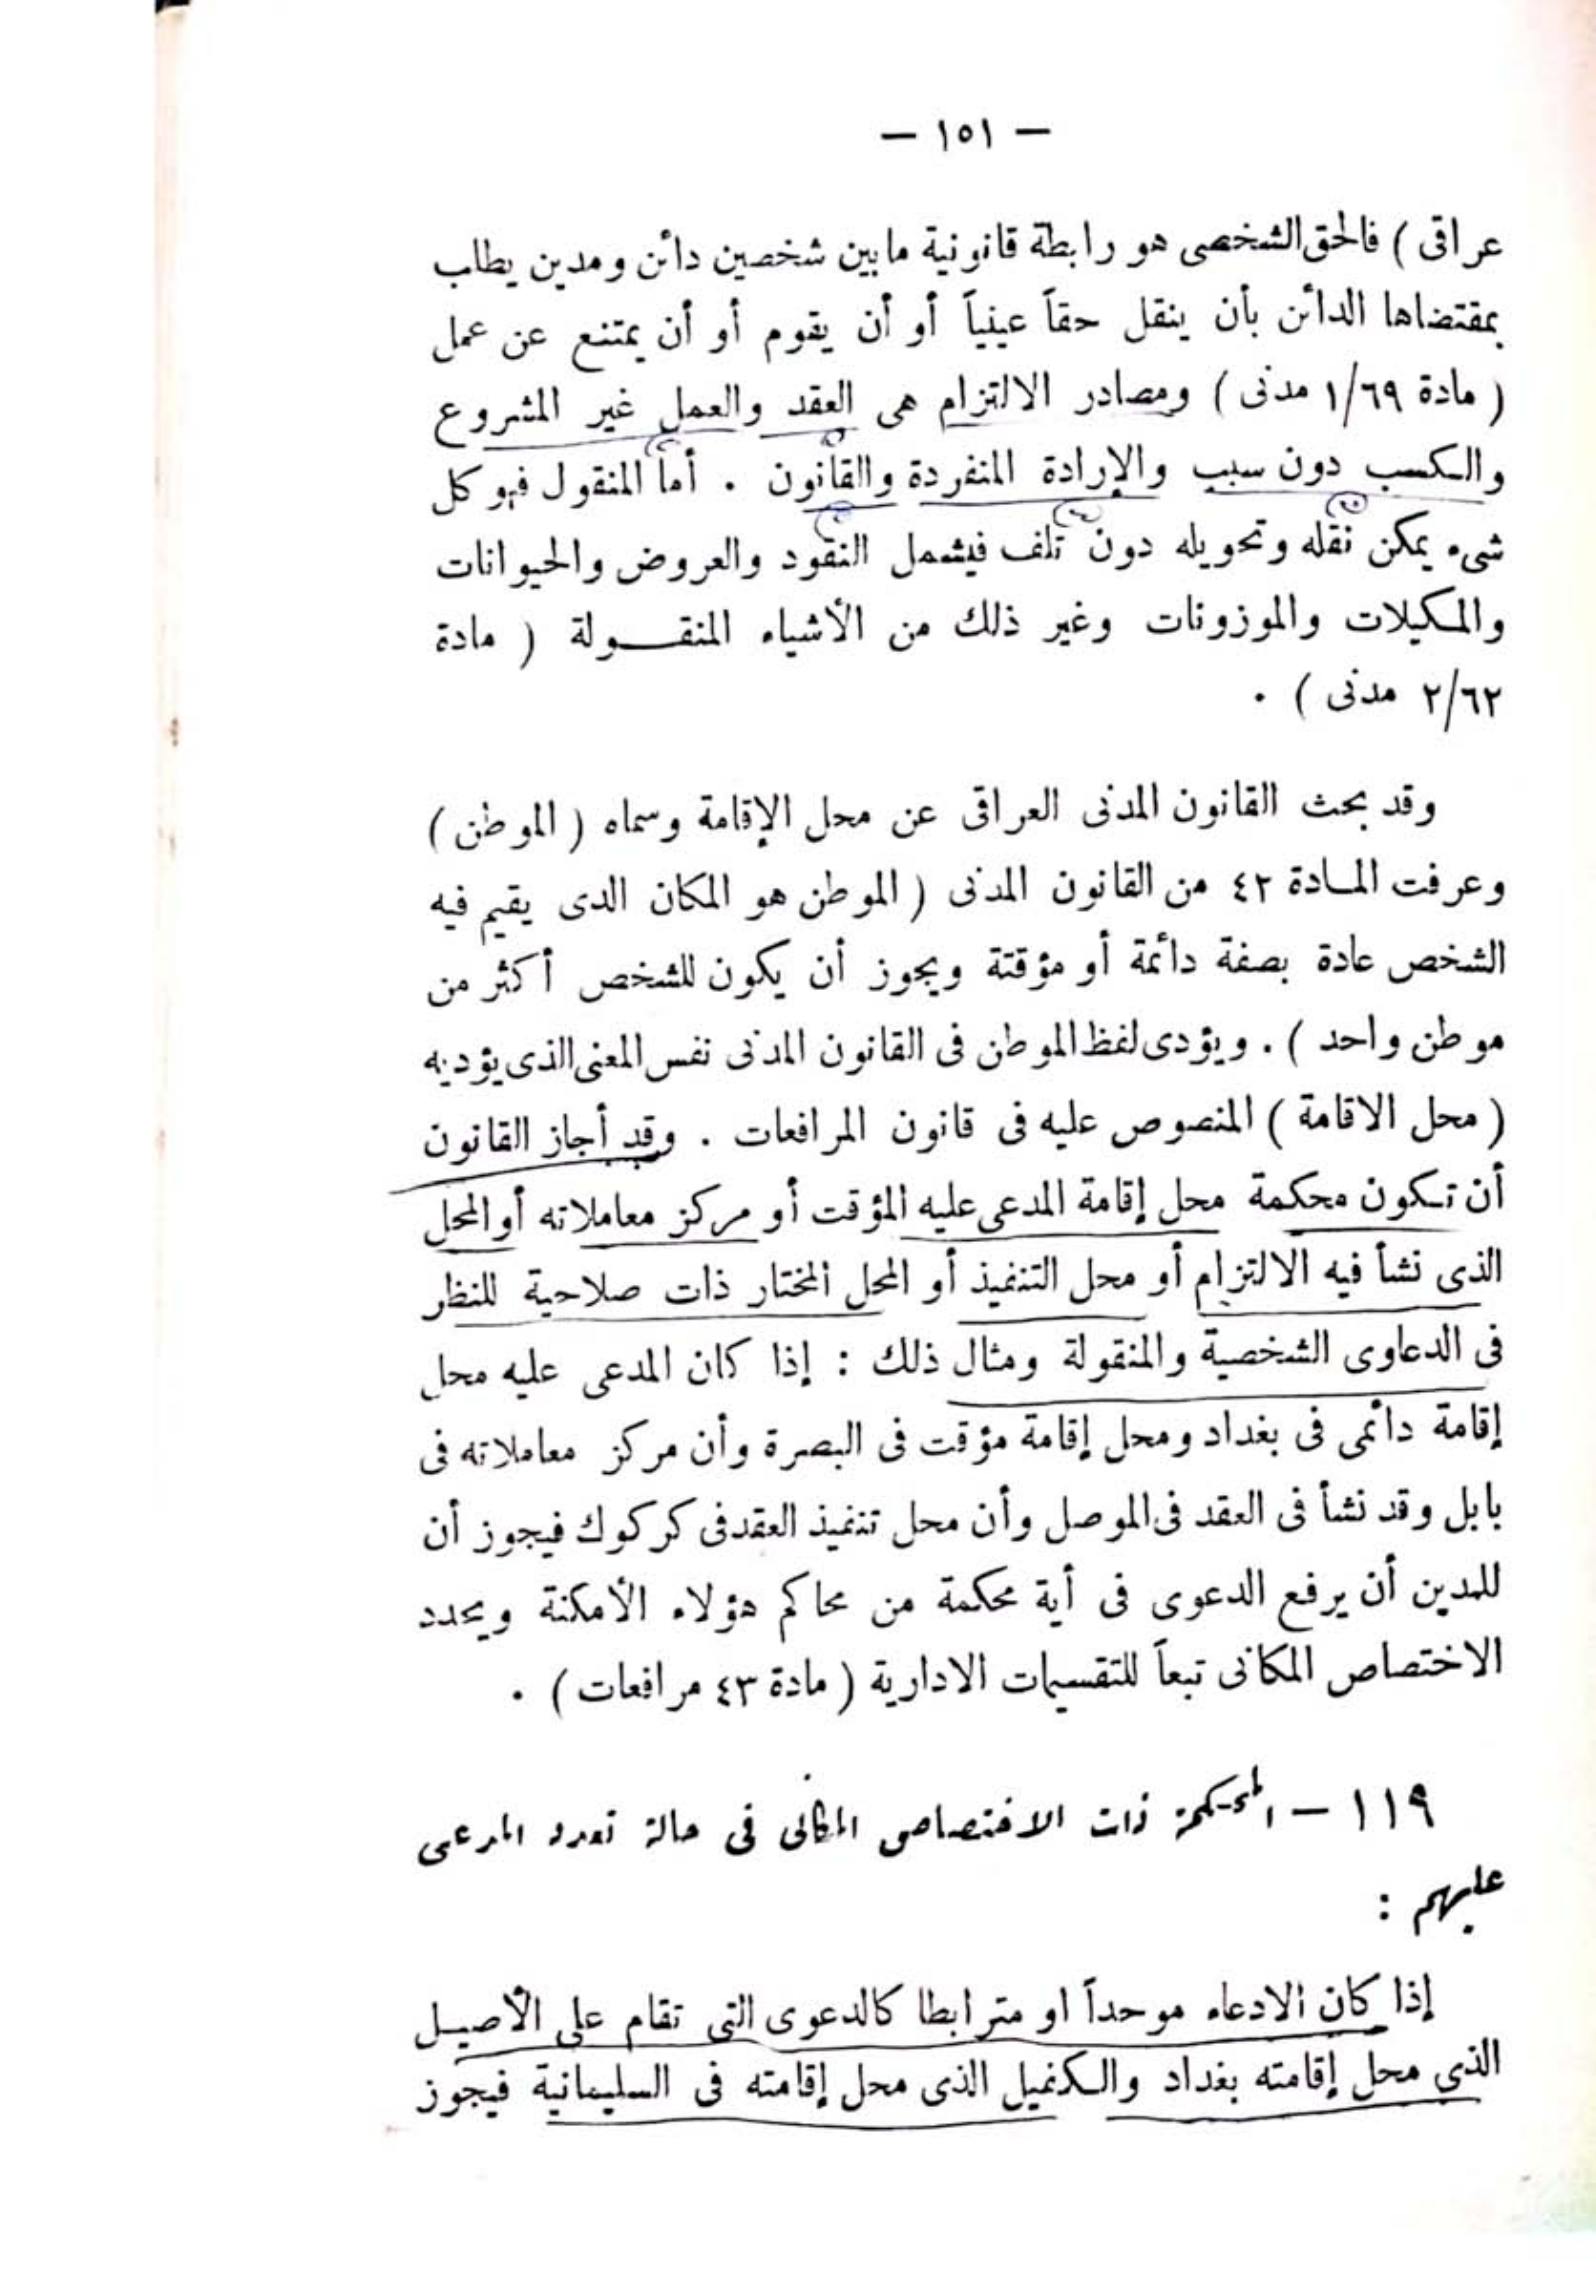 — ١٥١ —
عراقى ) فالحق الشخصى هو رابطة قانونية ما بين شخصين دائن ومدين يطاب
بمقتضاها الدائن بأن ينقل حقاً عينياً أو أن يقوم أو أن يمتنع عن عمل
( مادة ١/٦٩ مدنى ) ومصادر الالتزام هى العقد والعمل غير المشروع
والكسب دون سبب والإرادة المنفردة والقانون . أما المنقول فهو كل
شىء يمكن نقله وتحويله دون تلف فيشمل النقود والعروض والحيوانات
والمكيلات والموزونات وغير ذلك من الأشياء المنقـــولة ( مادة
٢/٦٢ مدنى ) .
وقد بحث القانون المدنى العراقى عن محل الإقامة وسماه ( الموطن )
وعرفت المـادة ٤٢ من القانون المدنى ( الموطن هو المكان الدى يقيم فيه
الشخص عادة بصفة دائمة أو مؤقتة ويجوز أن يكون للشخص أكثر من
موطن واحد ) . ويؤدى لفظ الموطن فى القانون المدنى نفس المعنى الذى يؤديه
( محل الاقامة ) المنصوص عليه فى قانون المرافعات . وقد أجاز القانون
أن تكون محكمة محل إقامة المدعى عليه المؤقت أو مركز معاملاته أو المحل
الذى نشأ فيه الالتزام أو محل التنفيذ أو المحل المختار ذات صلاحية للنظر
فى الدعاوى الشخصية والمنقولة ومثال ذلك : إذا كان المدعى عليه محل
إقامة دائمى فى بغداد ومحل إقامة مؤقت فى البصرة وأن مركز معاملاته فى
بابل وقد نشأ فى العقد فى الموصل وأن محل تنفيذ العقد فى كركوك فيجوز أن
للمدين أن يرفع الدعوى فى أية محكمة من محاكم هؤلاء الأمكنة ويحدد
الاختصاص المكانى تبعاً للتقسيمات الادارية ( مادة ٤٣ مرافعات ) .
١١٩ — المحكمة ذات الاختصاص المكانى فى حالة تعدد المدعى
عليهم :
إذا كان الادعاء موحداً او مترابطا كالدعوى التى تقام على الأصيـل
الذى محل إقامته بغداد والكفيل الذى محل إقامته فى السليمانية فيجوز